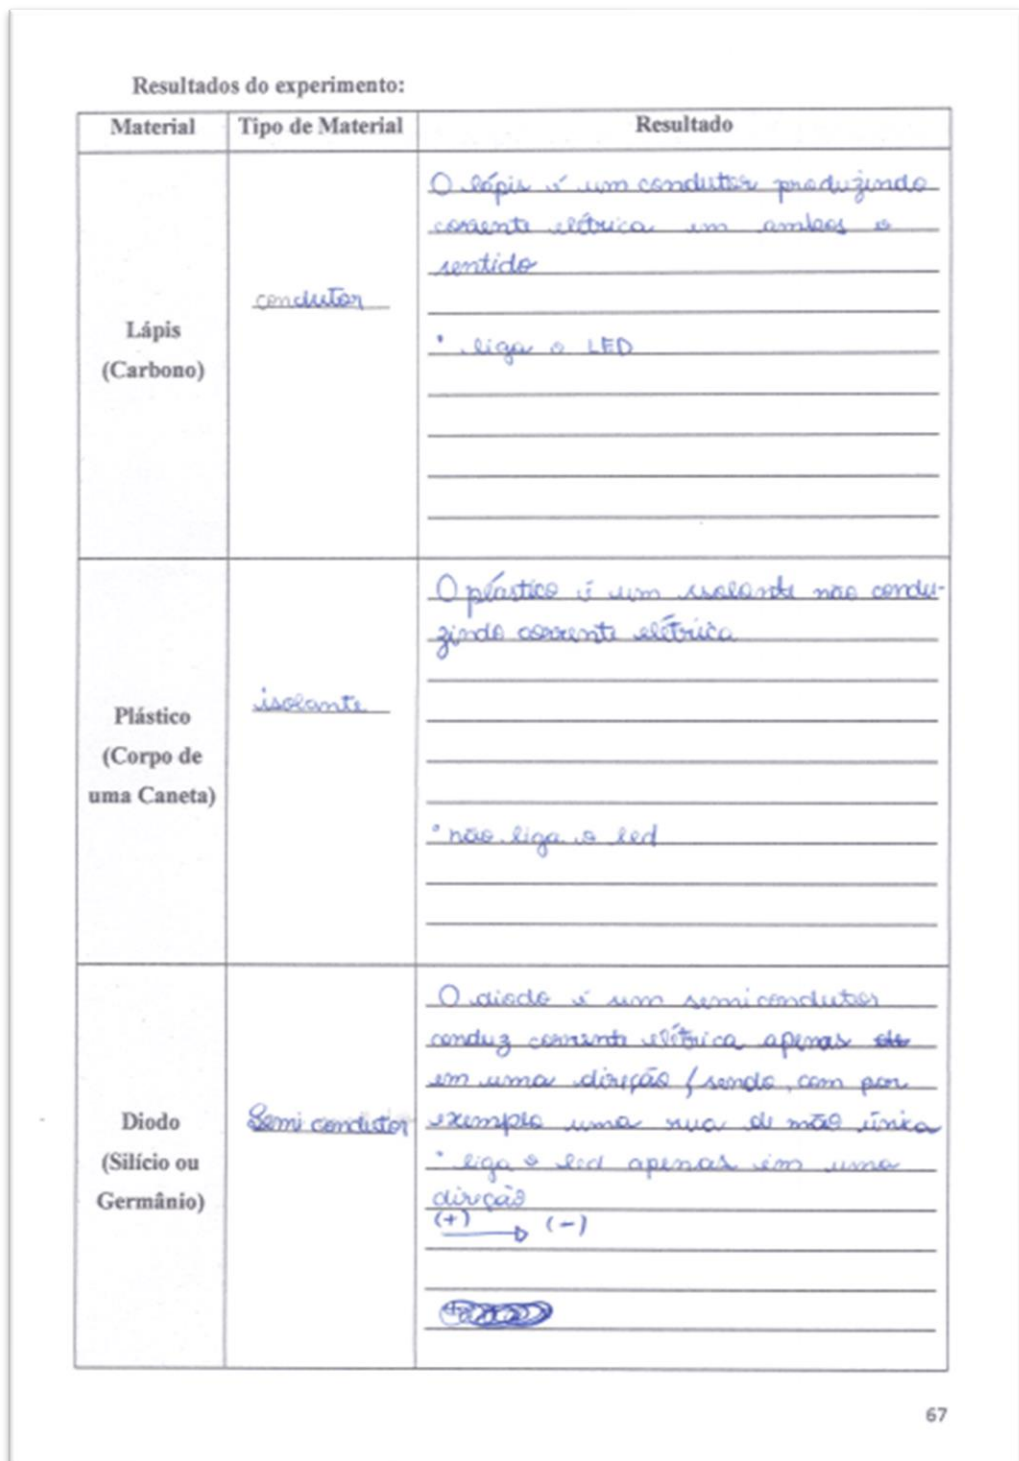 Resultados do experimento:
Material Tipo de Material Resultado
Lápis
(Carbono)
condutor
O lápis é um condutor produzindo
corrente elétrica em ambos o
sentido
• liga o LED
Plástico
(Corpo de
uma Caneta)
isolante
O plástico é um isolante não condu-
zindo corrente elétrica
• não liga o led
Diodo
(Silício ou
Germânio)
Semi condutor
O diodo é um semicondutor
conduz corrente elétrica apenas
em uma direção (sendo, com por
exemplo uma rua de mão única
• liga o led apenas em uma
direção
(+) → (-)
67